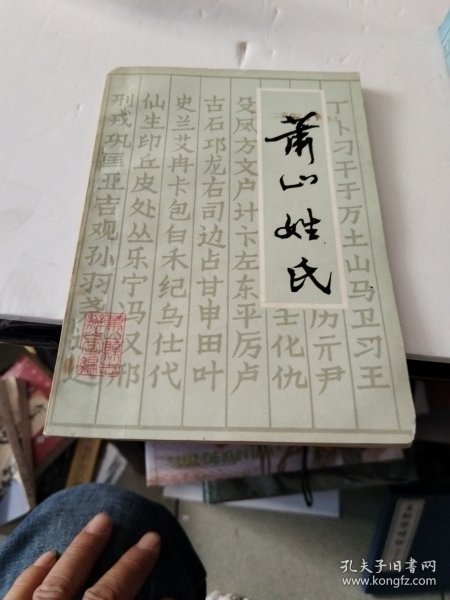 萧山姓氏
丁卜刁干于万土山马卫习王
历亓尹
壬化仇
殳凤方文户计卞左东平厉卢
古石邛龙右司边占甘申田叶
史兰艾冉卡包白禾纪乌仕代
仙生印丘皮处丛乐宁冯
邢戎巩匡亚吉观孙羽
LUZ DE KUNTUR
孔夫子旧书网
www.kongfz.com